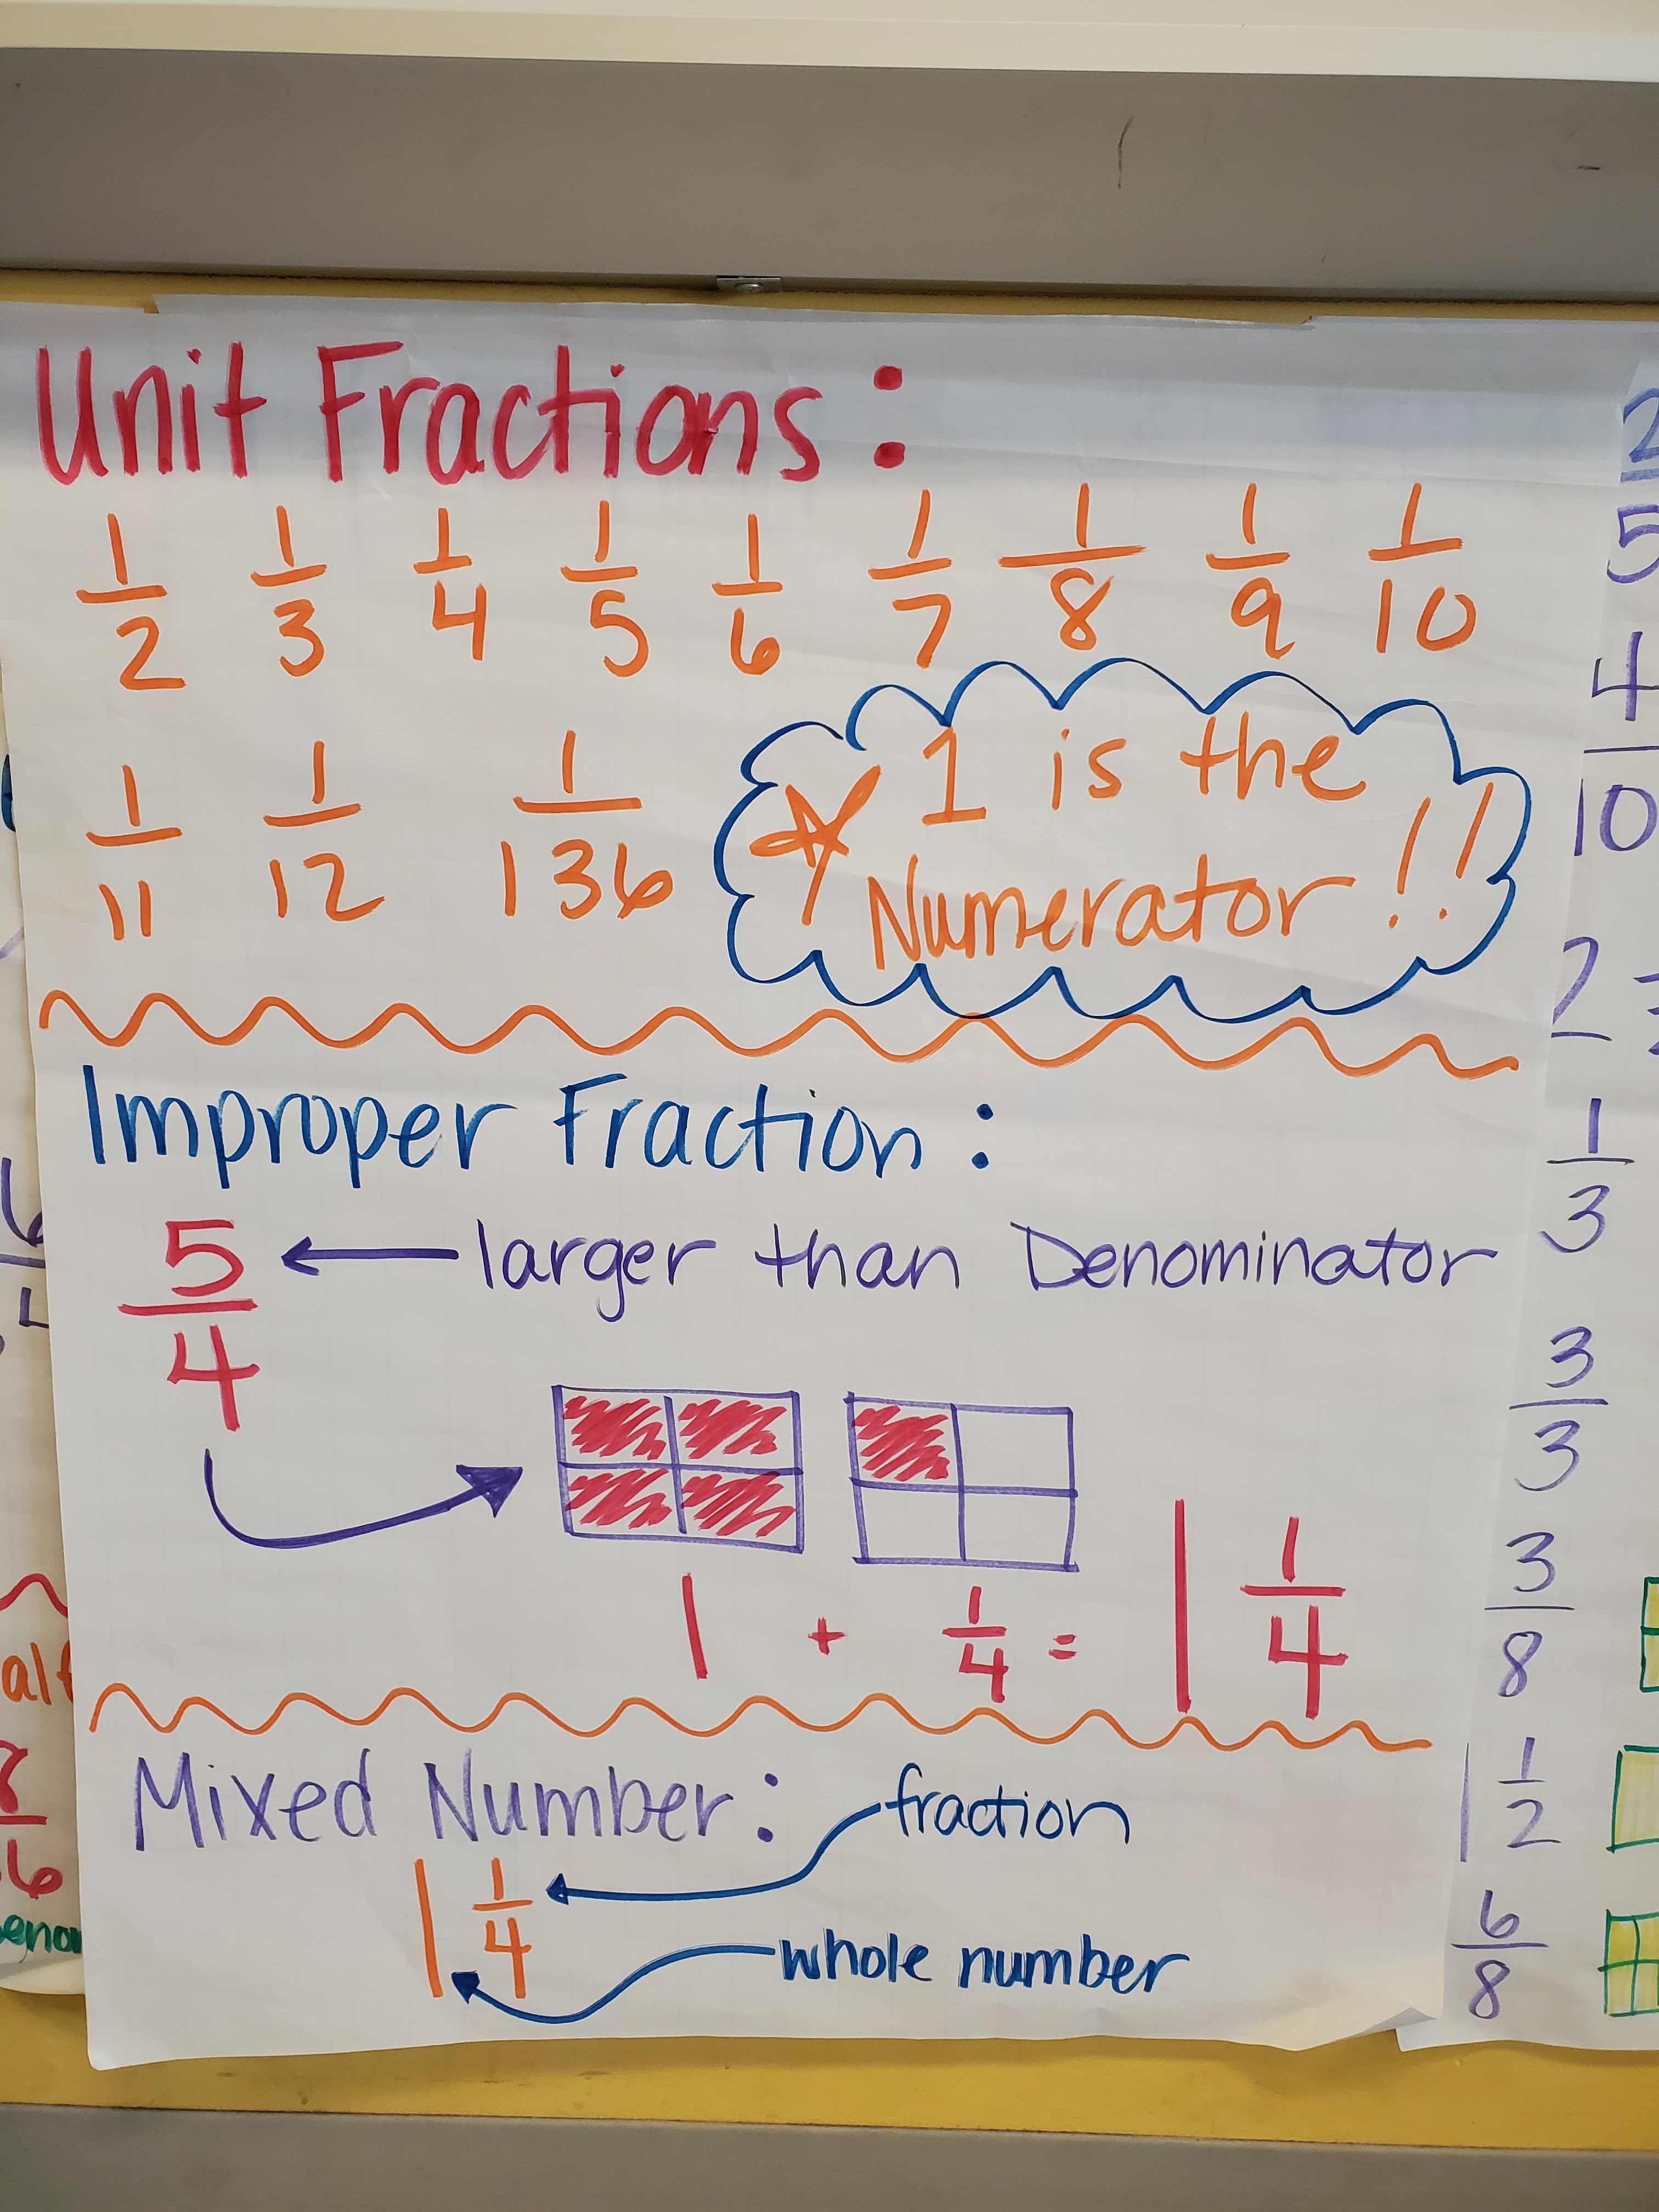 Unit Fractions:
1/2 1/3 1/4 1/5 1/6 1/7 1/8 1/9 1/10
1/11 1/12 1/136
1 is the
Numerator!!
Improper Fraction:
5/4 ← larger than Denominator
1 + 1/4 = 1 1/4
Mixed Number:
fraction
1 1/4
whole number
2/5
4/10
2
1/3
3/3
3/8
1 1/2
6/8